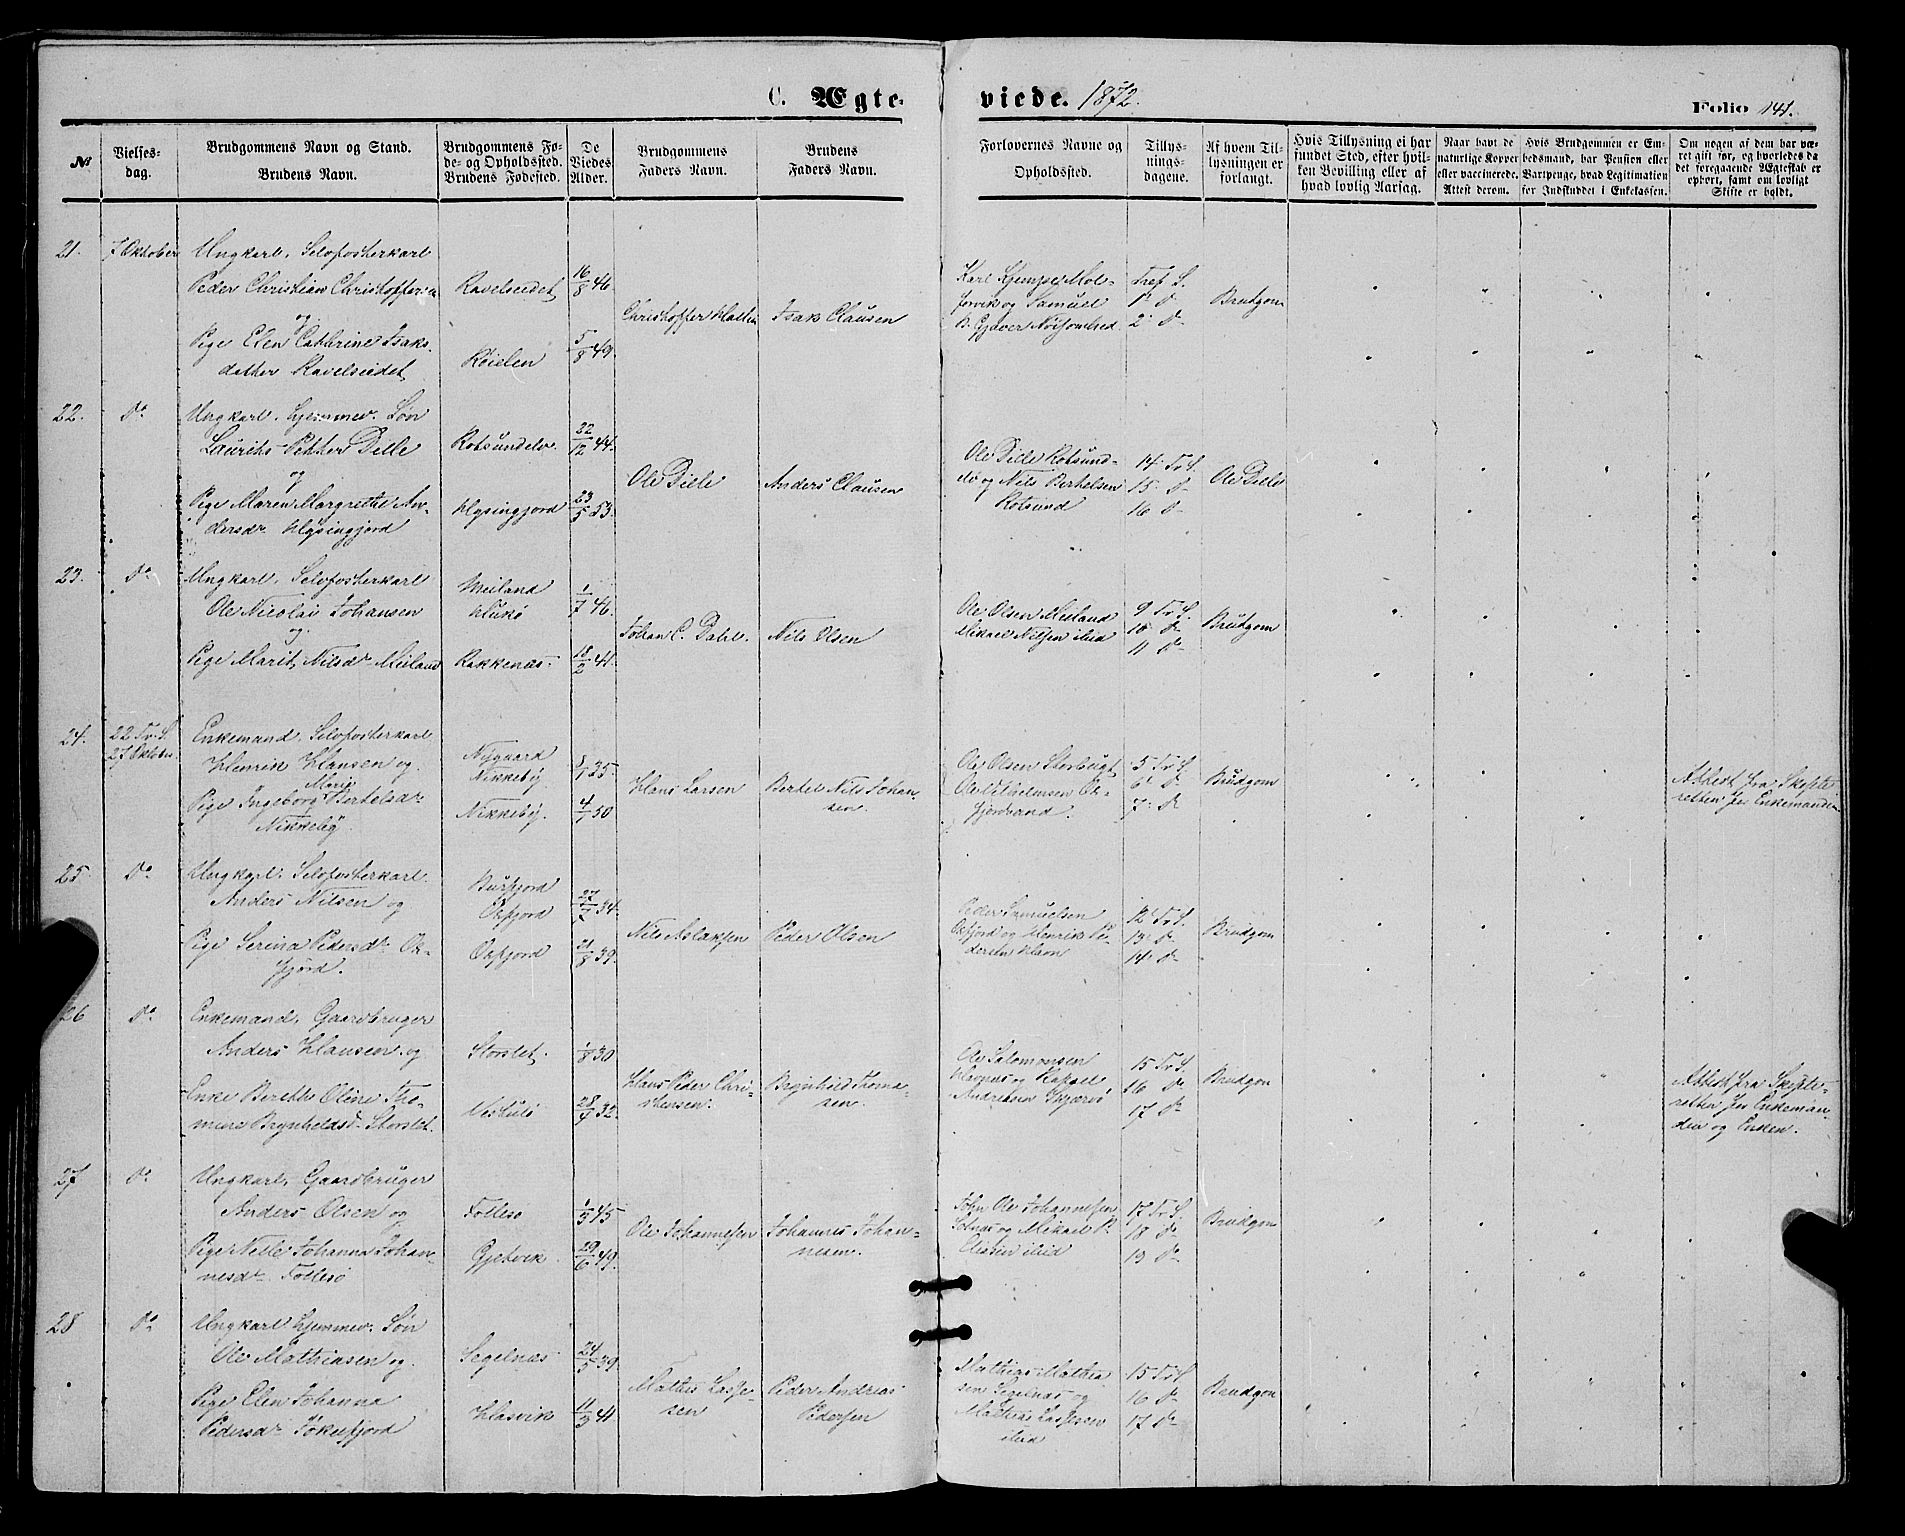 C. Ægte-
viede. 1872.
Folio 141.
№
Vielses-
dag.
Brudgommens Navn og Stand.
Brudens Navn.
Brudgommens Fø-
de- og Opholdssted.
Brudens Fødested.
De
Viedes
Alder.
Brudgommens
Faders Navn.
Brudens
Faders Navn.
Forlovernes Navne og
Opholdssted.
Tillys-
nings-
dagene.
Af hvem Til-
lysningen er
forlangt.
Hvis Tillysning ei har
fundet Sted, efter hvil-
ken Bevilling eller af
hvad lovlig Aarsag.
Naar havt de
naturlige Kopper
eller vaccinerede.
Attest derom.
Hvis Brudgommen er Em-
bedsmand, har Pension eller
Vartpenge, hvad Legitimation
for Indskuddet i Enkekassen.
Om nogen af dem har væ-
ret gift før, og hvorledes da
det foregaaende Ægteskab er
ophørt, samt om lovligt
Skifte er holdt.
21.
7 Oktober
Ungkarl, Selvfosterkarl
Peder Christian Christoffersen
og
Pige Elen Cathrine Isaks-
datter Ravelseidet
Ravelseidet
Røielen
16/8 46
5/8 49.
Isak Clausen
forvik og Samuel
1ste Dº
2. Dº
Brudgom
22.
Dº
Ungkarl, hjemmev. Søn
Laurits Petter Dille
og
Pige Maren Margrethe An-
dersdr
Rotsundelv.
22/12 44.
23/5 53.
Ole Dille
Anders Clausen
Ole Dille Rotsund-
elv og Nils Berthelsen
Rotsund
14. Tr S.
15. Dº
16 Dº
Ole Dille
23.
Dº
Ungkarl, Selvfosterkarl
Ole Nicolai Johansen
og
Pige Marit Nilsdr Meiland
Meiland
Hukø
Rakkenæs
1/7 46.
18/2 41
Johan C. Dahl.
Nils Olsen
Ole Olsen Meiland
Mikael Nilsen ibid
9 Tr S.
10 Dº
11 Dº
Brudgom
24.
22 Tr. S.
27 Oktober.
Enkemand, Selvfosterkarl
Henrik Hansen og
Marie
Pige Ingeborg Bertelsdr
Nikkeby.
Nygaard
Nikkeby
Nikkeby.
8/1 35.
4/1 50
Hans Larsen
Bertel Nils Johan-
sen.
Ole Olsen Storbugt
Ole Vilhelmsen Ox-
fjordstrand.
5 Tr S.
6 Dº
7 Dº
Brudgom
Attest fra Skifte-
retten for Enkemanden
25
Dº
Ungkarl, Selvfosterkarl.
Anders Nilsen og
Pige Serina Pedersdr Ox-
fjord.
Burfjord
Oxfjord
Oxfjord
27/7 34.
21/8 39.
Nils Aslaksen
Peder Olsen
Peder Samuelsen
Oxfjord og Henrik Pe-
dersen Havn
12 Tr S.
13 Dº
14 Dº
Brudgom
26
Dº
Enkemand, Gaardbruger
Anders Hansen og
Enke Berethe Oline Tho-
mine Brynheldsdr Storslet.
Storslet
1/8 30
28/9 32.
Hans Peder Chri-
stensen.
Brynhild Thoma-
sen.
Ole Salomonsen
Andreasen Skjærø
15 Tr S.
16 Dº
17 Dº
Brudgom
Attest fra Skifte-
retten for Enkeman-
den og Enken.
27
Dº
Ungkarl, Gaardbruger
Anders Olsen og
Pige Nelle Johanna Johan-
nesdr Follesø
Follesø
Gjetvik
1/5 45
29/6 49.
Ole Johannesen
Johannes Johan-
nesen.
John Ole Johannesen
Sotnæs og Mikael P.
Eliesen ibid
17 Tr S.
18 Dº
19 Dº
Brudgom
28
Dº
Ungkarl hjemmev. Søn
Ole Mathiasen og
Pige Elen Johanna
Pedersdr Jøkelfjord
Segelnæs
Hasvik
24/5 39.
11/3 41
Mathis Lasse-
sen
Peder Andreas
Pedersen
Mathias Mathia-
sen Segelnæs og
Mathias Lassesen
ibid
15 Tr S.
16 Dº
17 Dº
Brudgom